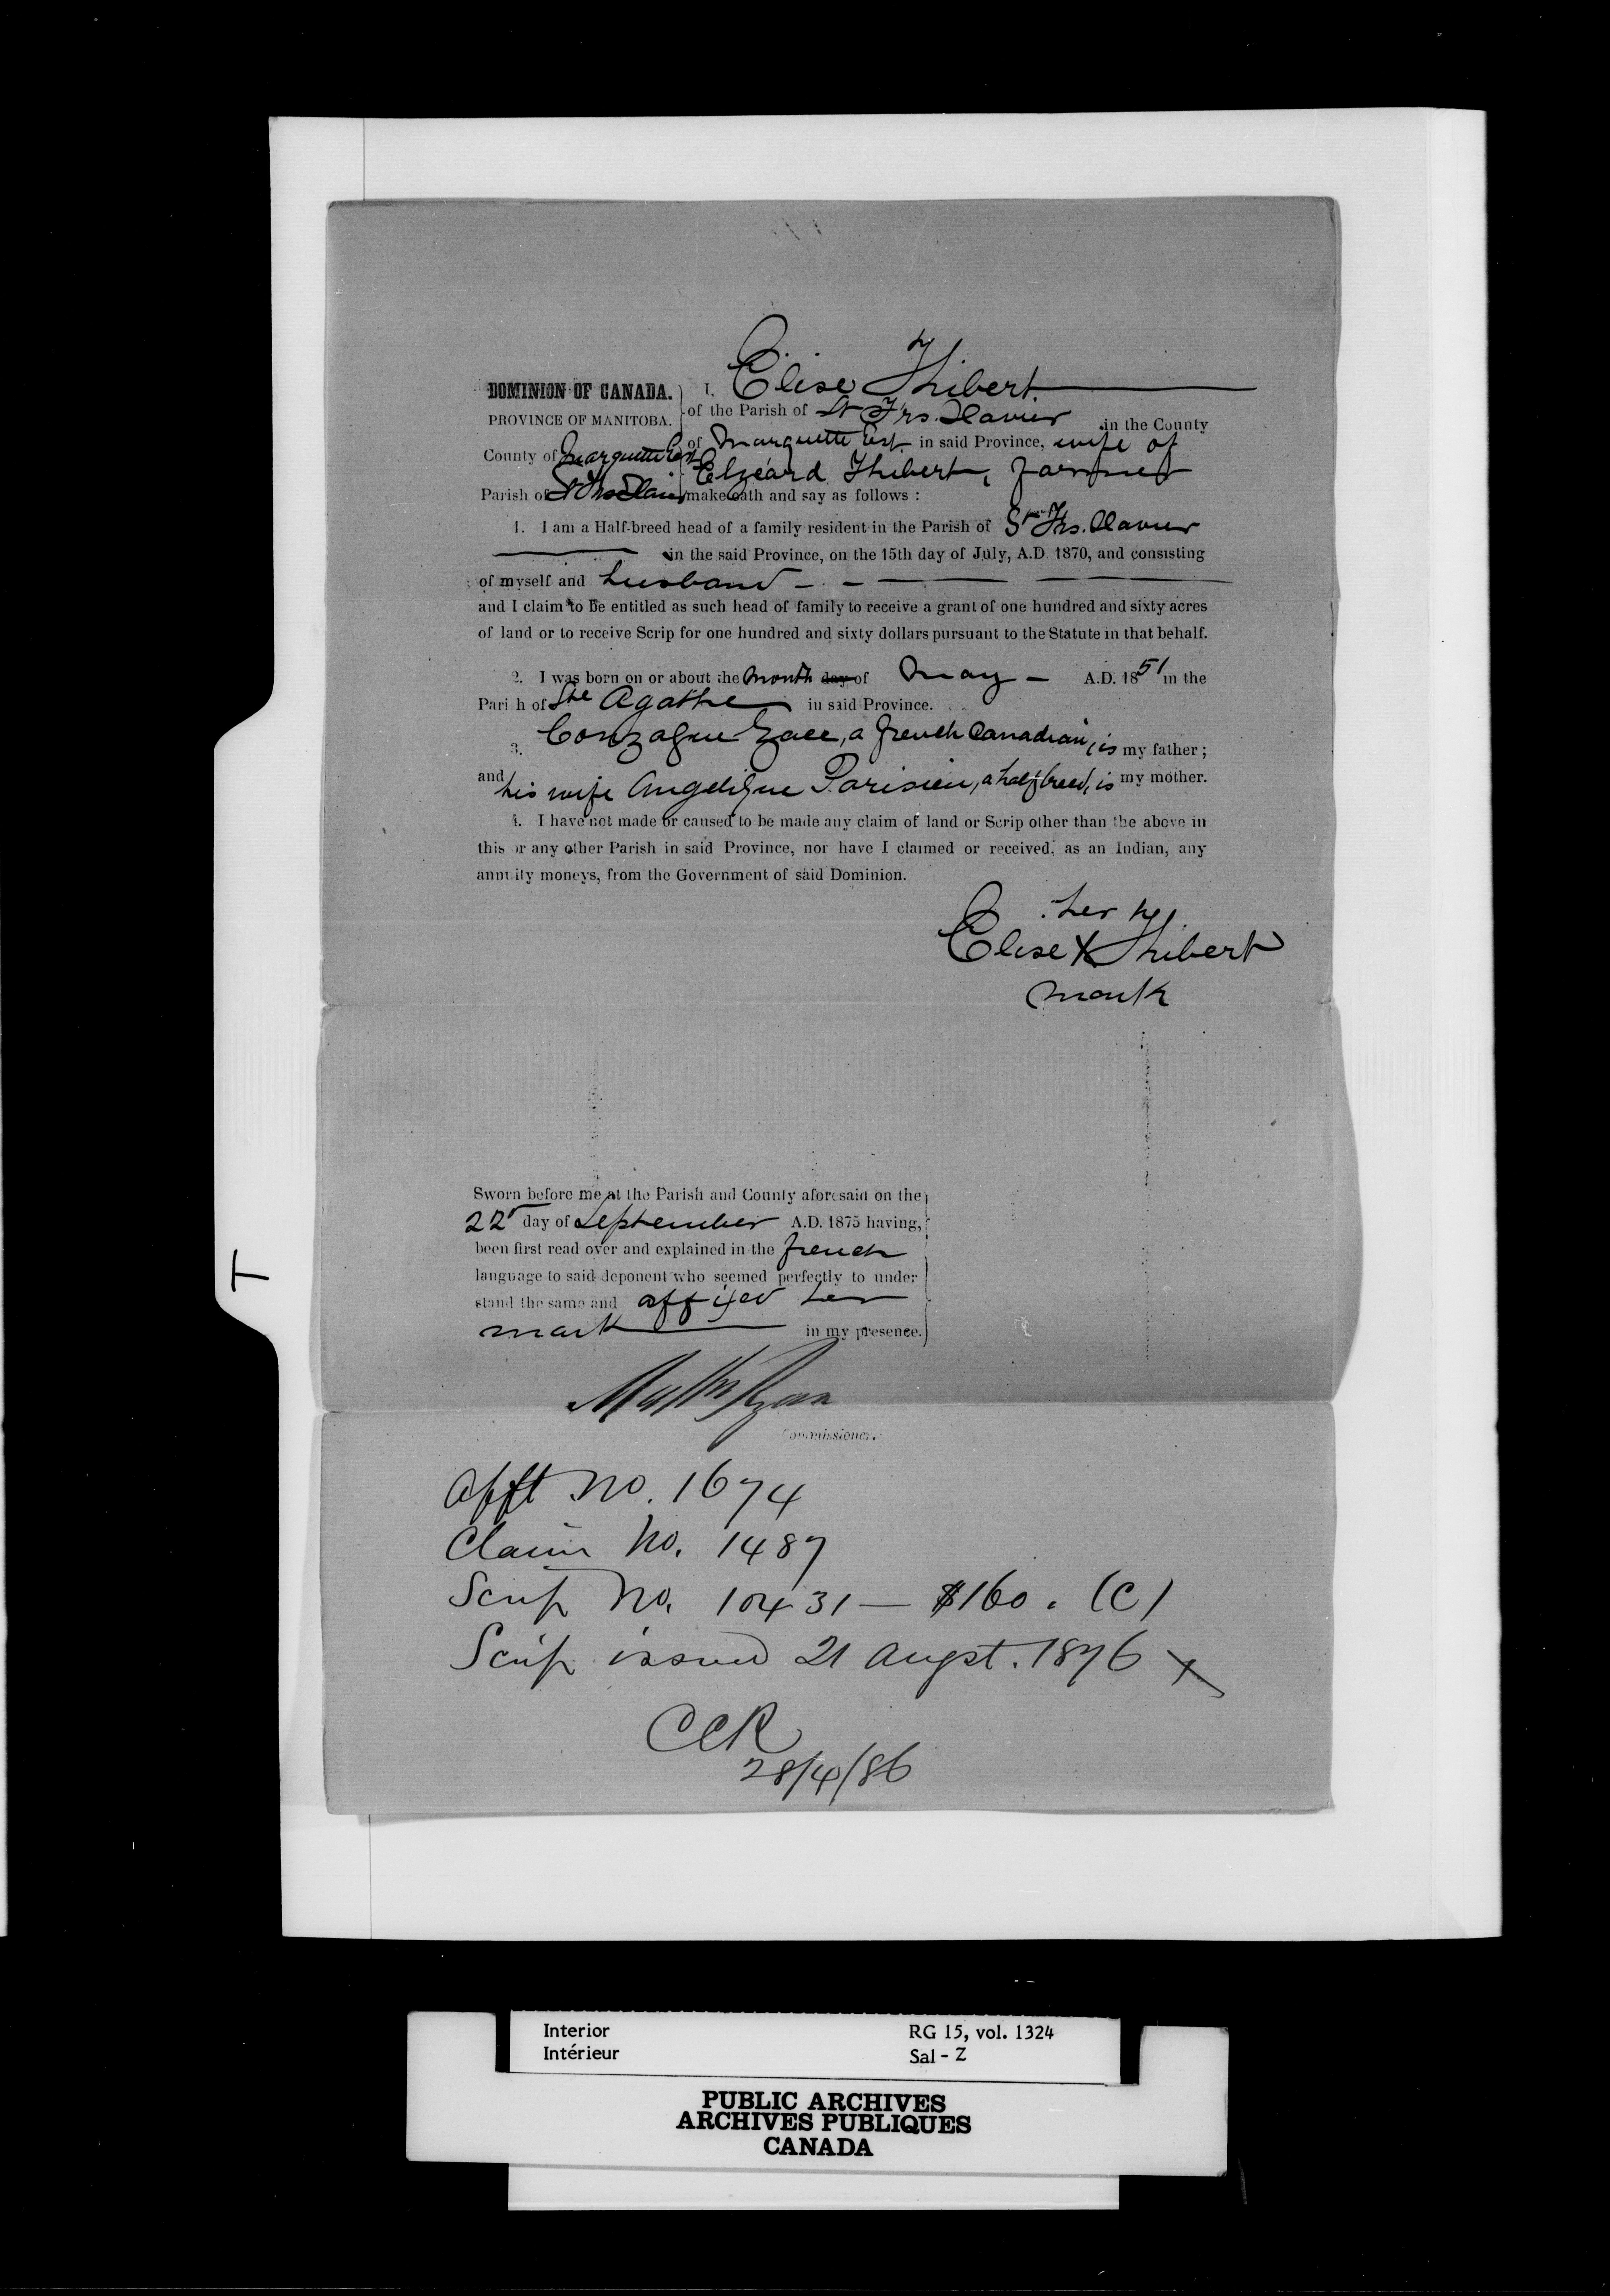 DOMINION OF CANADA.
PROVINCE OF MANITOBA.
County of Marquette East
Parish of St Frs Xavier
I, Elise Thibert
of the Parish of St Frs. Xavier in the County
of Marquette Est in said Province, wife of
Elzéard Thibert, farmer
make oath and say as follows :
1. I am a Half-breed head of a family resident in the Parish of St Frs. Xavier
in the said Province, on the 15th day of July, A.D. 1870, and consisting
of myself and husband
and I claim to be entitled as such head of family to receive a grant of one hundred and sixty acres
of land or to receive Scrip for one hundred and sixty dollars pursuant to the Statute in that behalf.
2. I was born on or about the month day of May A.D. 1851 in the
Parish of Ste Agathe in said Province.
3. Gonzague Zace, a french Canadian, is my father ;
and his wife Angelique Parisien, a halfbreed, is my mother.
4. I have not made or caused to be made any claim of land or Scrip other than the above in
this or any other Parish in said Province, nor have I claimed or received, as an Indian, any
annuity moneys, from the Government of said Dominion.
her
Elise X Thibert
mark
Sworn before me at the Parish and County aforesaid on the
22d day of September A.D. 1875 having,
been first read over and explained in the french
language to said deponent who seemed perfectly to under
stand the same and affixed her
mark in my presence.
Matth Ryan
Commissioner.
Afft No. 1674
Claim No. 1487
Scrip No. 10431 — $160. (C)
Scrip issued 21 Augst. 1876 X
CCR
28/4/86
T
Interior RG 15, vol. 1324
Intérieur Sal - Z
PUBLIC ARCHIVES
ARCHIVES PUBLIQUES
CANADA